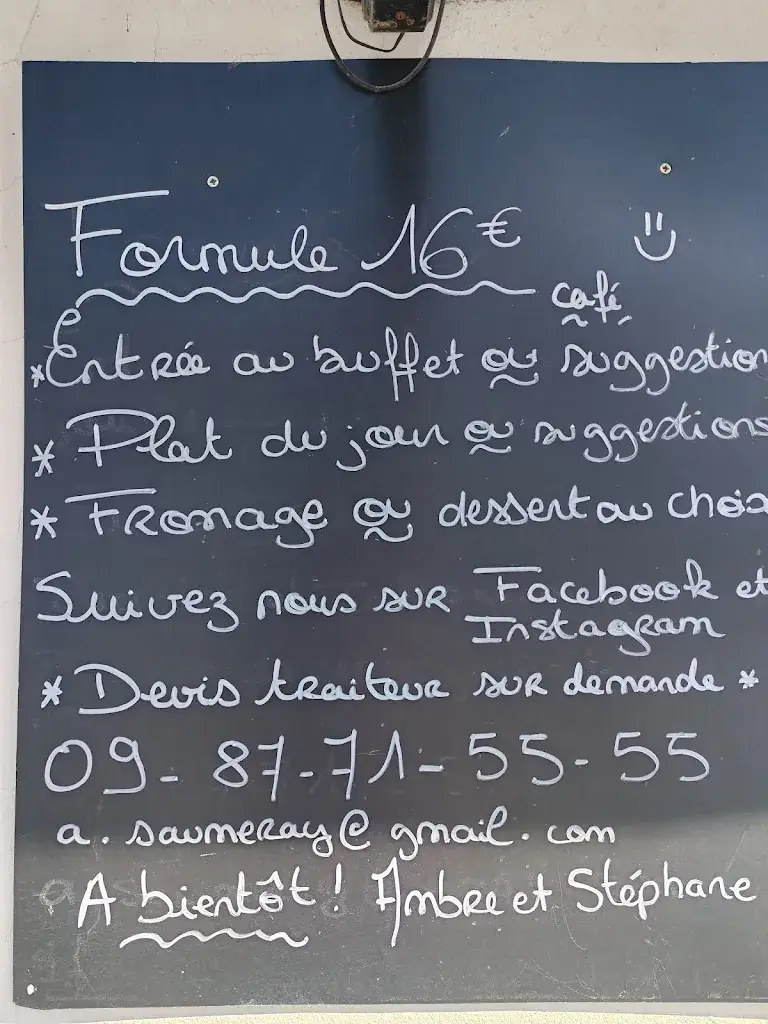 Formule 16€
café
*Entrée au buffet ou suggestion
* Plat du jour ou suggestions
* Fromage ou dessert au choix
Suivez nous sur Facebook et
Instagram
* Devis traiteur sur demande *
09-87-71-55-55
a.saumeray@gmail.com
A bientôt! Ambre et Stéphane